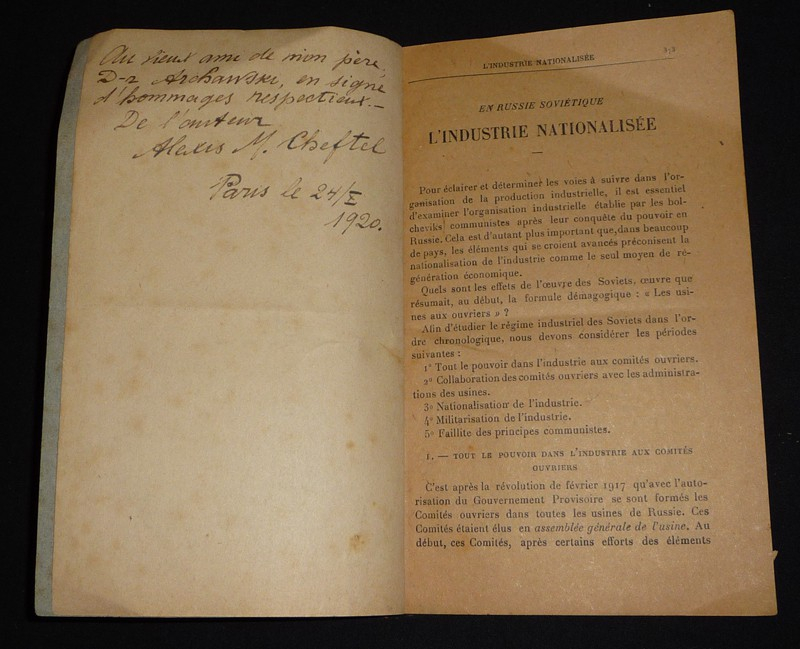 Au vieux ami de mon père,
D-r Archawski, en signe
d'hommages respectieux.—
De l'auteur
Alexis M. Cheftel
Paris le 24/X
1920.
L'INDUSTRIE NATIONALISÉE
EN RUSSIE SOVIÉTIQUE
L'INDUSTRIE NATIONALISÉE
Pour éclairer et déterminer les voies à suivre dans l'or-
ganisation de la production industrielle, il est essentiel
d'examiner l'organisation industrielle établie par les bol-
cheviks communistes après leur conquête du pouvoir en
Russie. Cela est d'autant plus important que, dans beaucoup
de pays, les éléments qui se croient avancés préconisent la
nationalisation de l'industrie comme le seul moyen de ré-
génération économique.
Quels sont les effets de l'œuvre des Soviets, œuvre que
résumait, au début, la formule démagogique : « Les usi-
nes aux ouvriers » ?
Afin d'étudier le régime industriel des Soviets dans l'or-
dre chronologique, nous devons considérer les périodes
suivantes :
1° Tout le pouvoir dans l'industrie aux comités ouvriers.
2° Collaboration des comités ouvriers avec les administra-
tions des usines.
3° Nationalisation de l'industrie.
4° Militarisation de l'industrie.
5° Faillite des principes communistes.
1. — TOUT LE POUVOIR DANS L'INDUSTRIE AUX COMITÉS
OUVRIERS
C'est après la révolution de février 1917 qu'avec l'auto-
risation du Gouvernement Provisoire se sont formés les
Comités ouvriers dans toutes les usines de Russie. Ces
Comités étaient élus en assemblée générale de l'usine. Au
début, ces Comités, après certains efforts des éléments